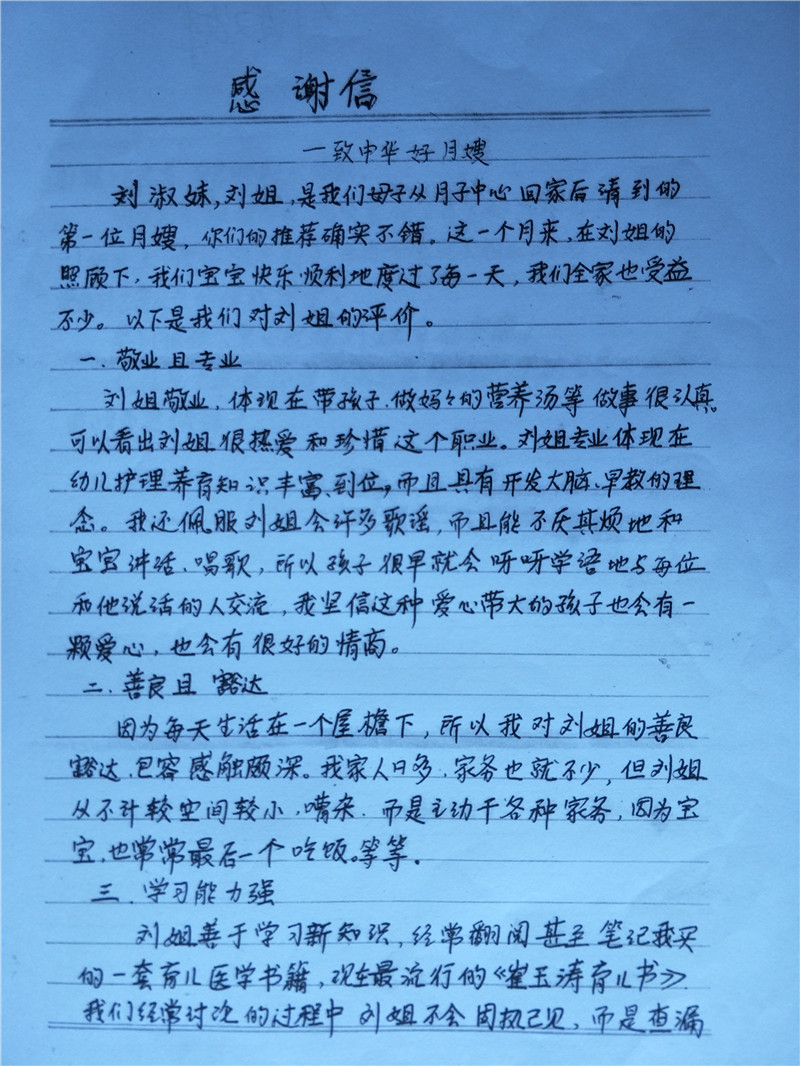 感谢信
一致中华好月嫂
刘淑妹,刘姐,是我们母子从月子中心回家后请到的
第一位月嫂,你们的推荐确实不错。这一个月来,在刘姐的
照顾下,我们宝宝快乐顺利地度过了每一天,我们全家也受益
不少。以下是我们对刘姐的评价。
一.敬业且专业
刘姐敬业,体现在带孩子、做妈々的营养汤等做事很认真。
可以看出刘姐很热爱和珍惜这个职业。刘姐专业体现在
幼儿护理养育知识丰富、到位,而且具有开发大脑、早教的理
念。我还佩服刘姐会许多歌谣,而且能不厌其烦地和
宝宝讲话、唱歌,所以孩子很早就会呀呀学语地与每位
和他说话的人交流,我坚信这种爱心带大的孩子也会有一
颗爱心,也会有很好的情商。
二.善良且豁达
因为每天生活在一个屋檐下,所以我对刘姐的善良
豁达、包容感触颇深。我家人口多,家务也就不少,但刘姐
从不计较空间较小,嘈杂.而是主动干各种家务,因为宝
宝,也常常最后一个吃饭。等等.
三.学习能力强
刘姐善于学习新知识,经常翻阅甚至笔记我买
的一套育儿医学书籍,现在最流行的《崔玉涛育儿书》.
我们经常讨论的过程中刘姐不会固执己见,而是查漏